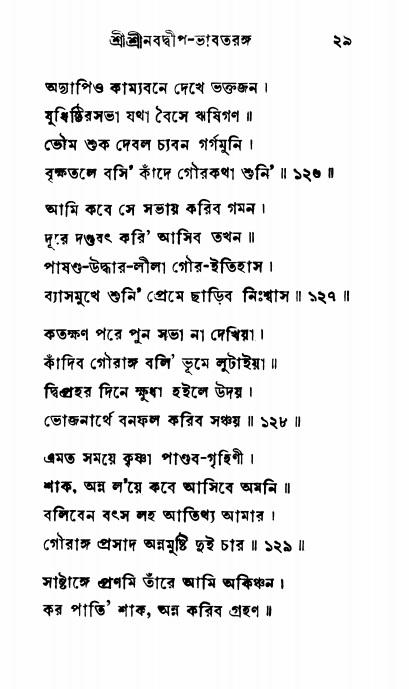 শ্রীশ্রীনবদ্বীপ-ভাবতরঙ্গ ২৯
অদ্যাপিও কাম্যবনে দেখে ভক্তজন ।
যুধিষ্ঠিরসভা যথা বৈসে ঋষিগণ ॥
ভৌম শুক দেবল চ্যবন গর্গমুনি ।
বৃক্ষতলে বসি’ কাঁদে গৌরকথা শুনি’ ॥ ১২৬ ॥
আমি কবে সে সভায় করিব গমন ।
দূরে দণ্ডবৎ করি’ আসিব তখন ॥
পাষণ্ড-উদ্ধার-লীলা গৌর-ইতিহাস ।
ব্যাসমুখে শুনি’ প্রেমে ছাড়িব নিঃশ্বাস ॥ ১২৭ ॥
কতক্ষণ পরে পুন সভা না দেখিয়া ।
কাঁদিব গৌরাঙ্গ বলি’ ভূমে লুটাইয়া ॥
দ্বিপ্রহর দিনে ক্ষুধা হইলে উদয় ।
ভোজনার্থে বনফল করিব সঞ্চয় ॥ ১২৮ ॥
এমত সময়ে কৃষ্ণা পাণ্ডব-গৃহিণী ।
শাক, অন্ন ল’য়ে কবে আসিবে অমনি ॥
বলিবেন বৎস লহ আতিথ্য আমার ।
গৌরাঙ্গ প্রসাদ অন্নমুষ্টি দুই চার ॥ ১২৯ ॥
সাষ্টাঙ্গে প্রণমি তাঁরে আমি অকিঞ্চন ।
কর পাতি’ শাক, অন্ন করিব গ্রহণ ॥